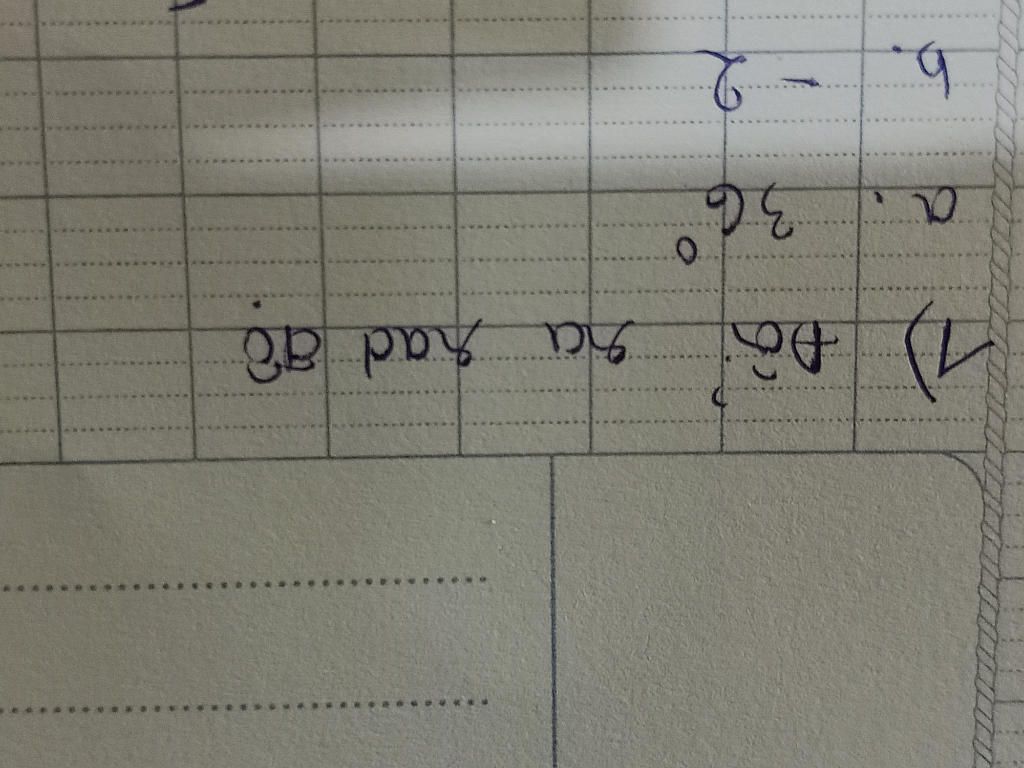 1) Đổi ra rad độ
a. 36°
b. - 2